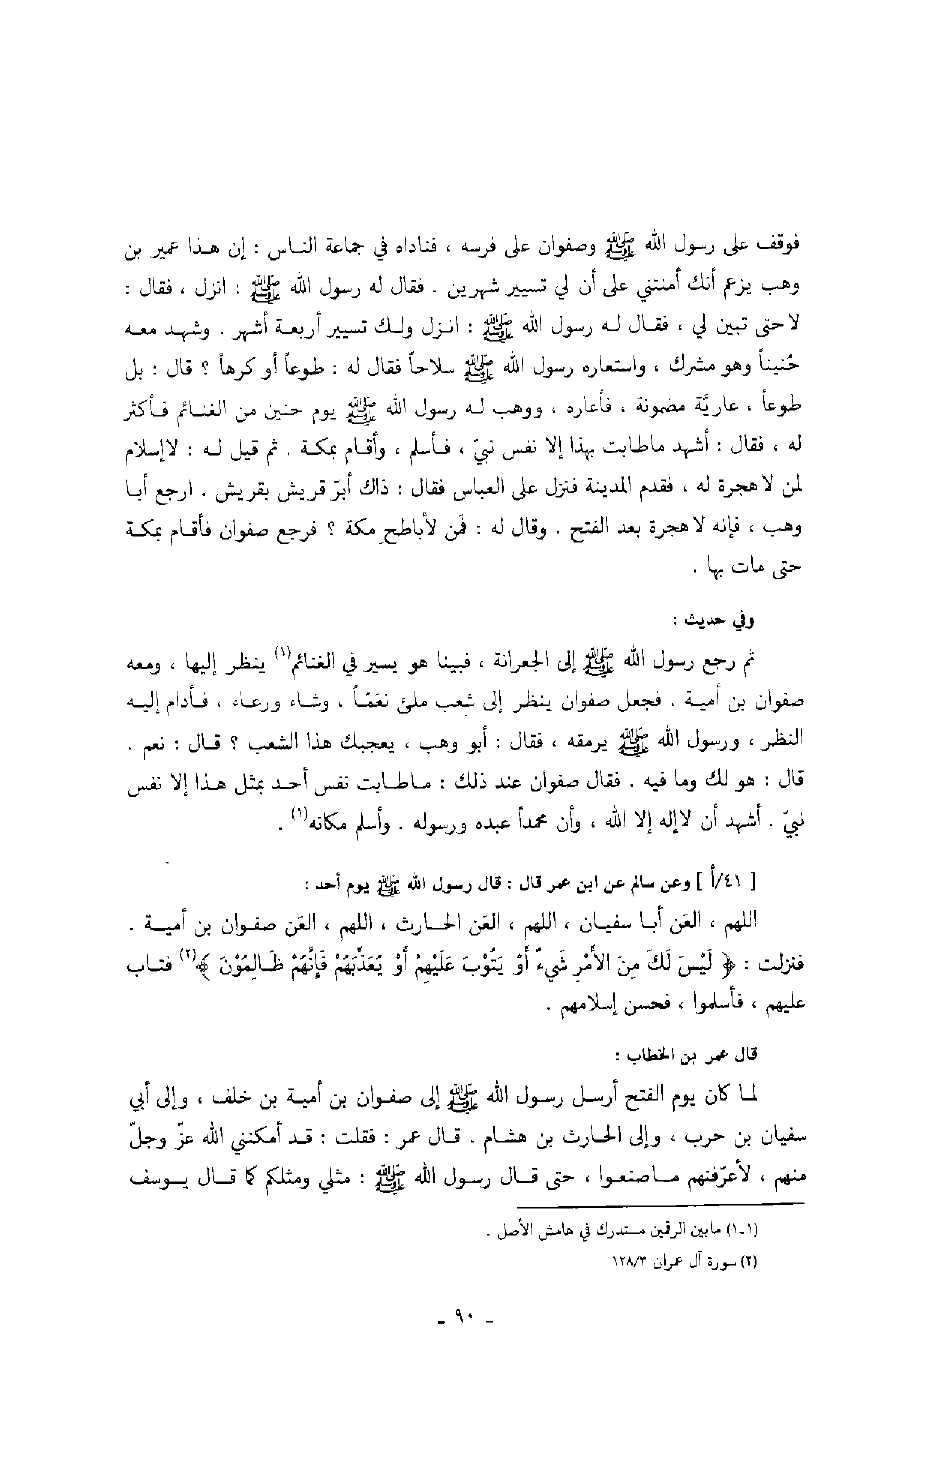 فوقف على رسول الله ﷺ وصفوان على فرسه ، فناداه في جماعة الناس : إن هذا عمير بن
وهب يزعم أنك أمنتني على أن لي تسيير شهرين . فقال له رسول الله ﷺ : انزل ، فقال :
لا حتى تبين لي ، فقال له رسول الله ﷺ : انزل ولك تسيير أربعة أشهر . وشهد معه
حُنيناً وهو مشرك ، واستعاره رسول الله ﷺ سلاحاً فقال له : طوعاً أو كرهاً ؟ قال : بل
طوعاً ، عاريَّة مضمونة ، فأعاره ، ووهب له رسول الله ﷺ يوم حنين من الغنائم فأكثر
له ، فقال : أشهد ماطابت بهذا إلا نفس نبيّ ، فأسلم ، وأقام بمكة . ثم قيل له : لا إسلام
لمن لا هجرة له ، فقدم المدينة فنزل على العباس فقال : ذاك أبرّ قريش بقريش . ارجع أبا
وهب ، فإنه لا هجرة بعد الفتح . وقال له : فمن لأباطح مكة ؟ فرجع صفوان فأقام بمكة
حتى مات بها .
وفي حديث :
ثم رجع رسول الله ﷺ إلى الجعرانة ، فبينا هو يسير في الغنائم(١) ينظر إليها ، ومعه
صفوان بن أمية . فجعل صفوان ينظر إلى شعب ملئ نعَمَاً ، وشاء ورعاء ، فأدام إليه
النظر ، ورسول الله ﷺ يرمقه ، فقال : أبو وهب ، يعجبك هذا الشعب ؟ قال : نعم .
قال : هو لك وما فيه . فقال صفوان عند ذلك : ماطابت نفس أحد بمثل هذا إلا نفس
نبيّ . أشهد أن لاإله إلا الله ، وأن محمداً عبده ورسوله . وأسلم مكانه(١) .
[ ٤١/أ ] وعن سالم عن ابن عمر قال : قال رسول الله ﷺ يوم أحد :
اللهم ، العَن أبا سفيان ، اللهم ، العَن الحارث ، اللهم ، العَن صفوان بن أمية .
فنزلت : ﴿ لَيْسَ لَكَ مِنَ الأَمْرِ شَيءٌ أَوْ يَتُوْبَ عَلَيْهِمْ أَوْ يُعَذِّبَهُمْ فَإِنَّهُمْ ظَالِمُوْنَ ﴾(٢) فتاب
عليهم ، فأسلموا ، فحسن إسلامهم .
قال عمر بن الخطاب :
لما كان يوم الفتح أرسل رسول الله ﷺ إلى صفوان بن أمية بن خلف ، وإلى أبي
سفيان بن حرب ، وإلى الحارث بن هشام . قال عمر : فقلت : قد أمكنني الله عزّ وجلّ
منهم ، لأعرّفنهم ماصنعوا ، حتى قال رسول الله ﷺ : مثلي ومثلكم كما قال يوسف
(١-١) مابين الرقمين مستدرك في هامش الأصل .
(٢) سورة آل عمران ١٢٨/٣
- ٩٠ -